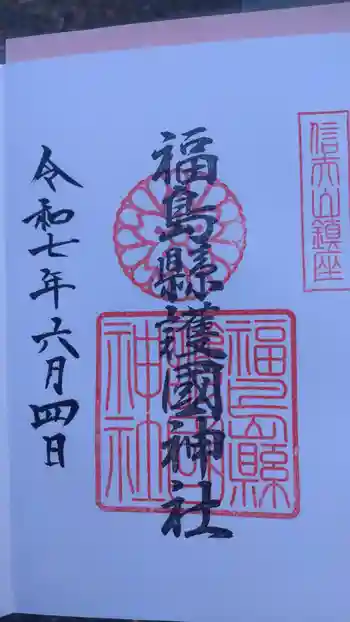 信夫山鎮座
福島縣護國神社
福島縣護國神社
令和七年六月四日